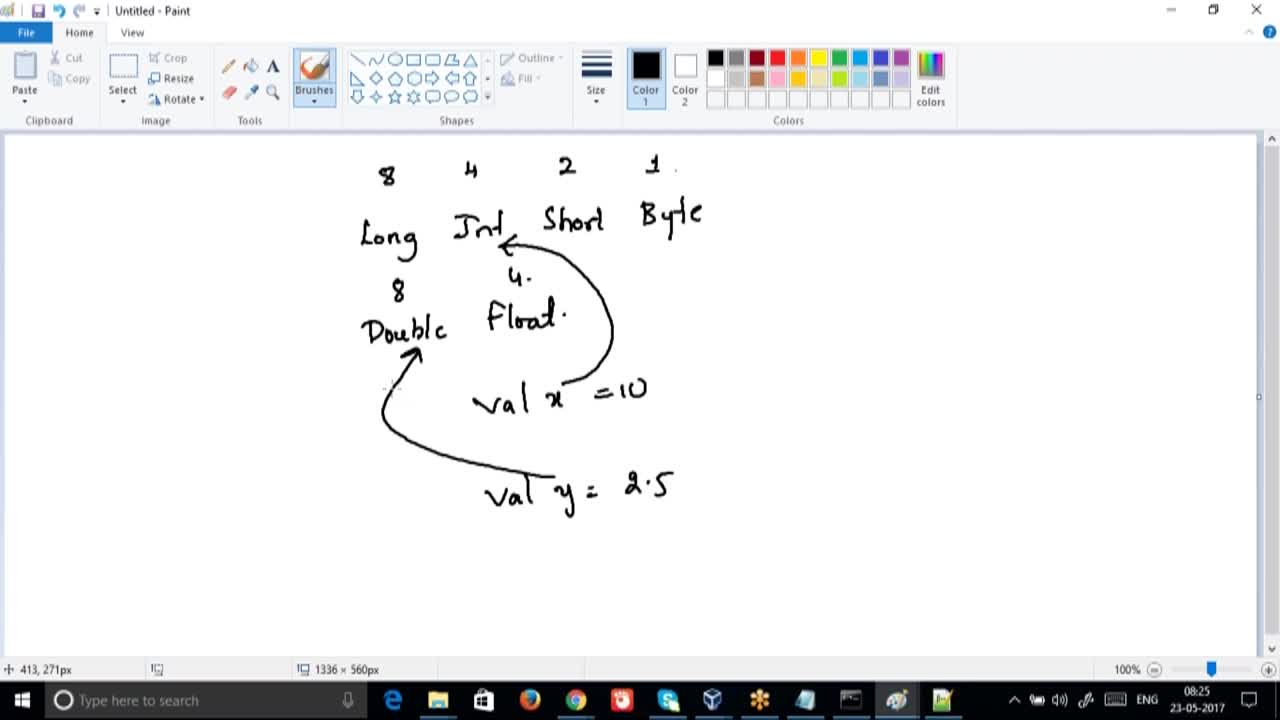 Untitled - Paint
File Home View
Cut
Copy
Paste
Clipboard
Crop
Resize
Rotate
Select
Image
Tools
Brushes
Outline
Fill
Shapes
Size
Color 1
Color 2
Edit colors
Colors
8 4 2 1
Long Int Short Byte
8 4.
Double Float.
val x = 10
val y = 2.5
413, 271px
1336 × 560px
100%
Type here to search
ENG
08:25
23-05-2017